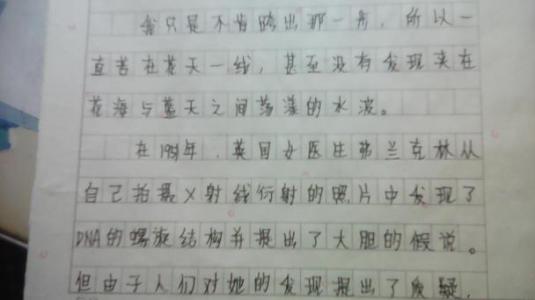 我只是不肯跨出那一舟，所以一
直苦在花天一线，甚至没有发现夹在
花海与蓝天之间荡漾的水波。
在1951年，英国女医生弗兰克林从
自己拍摄X射线衍射的照片中发现了
DNA的螺旋结构并提出了大胆的假说。
但由于人们对她的发现提出了质疑，